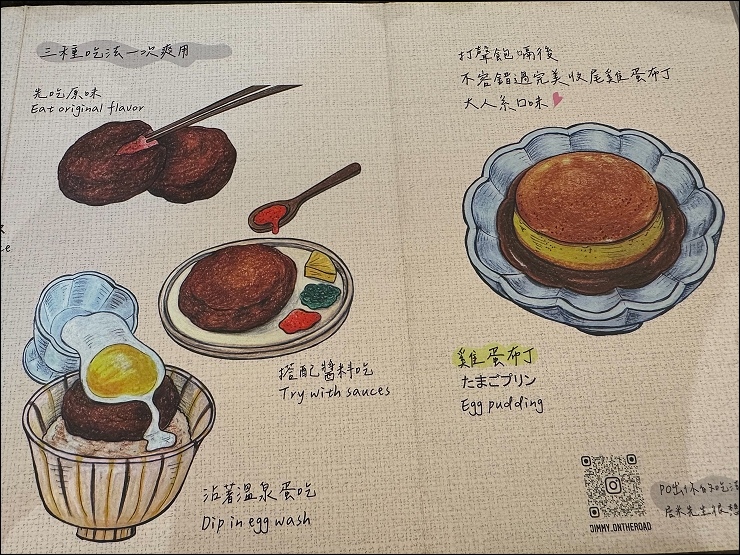 三種吃法一次爽用
先吃原味
Eat original flavor
搭配醬料吃
Try with sauces
沾著溫泉蛋吃
Dip in egg wash
打聲飽嗝後
不容錯過完美收尾雞蛋布丁
大人系口味
雞蛋布丁
たまごプリン
Egg pudding
JIMMY.ONTHEROAD
PO出你的吃法